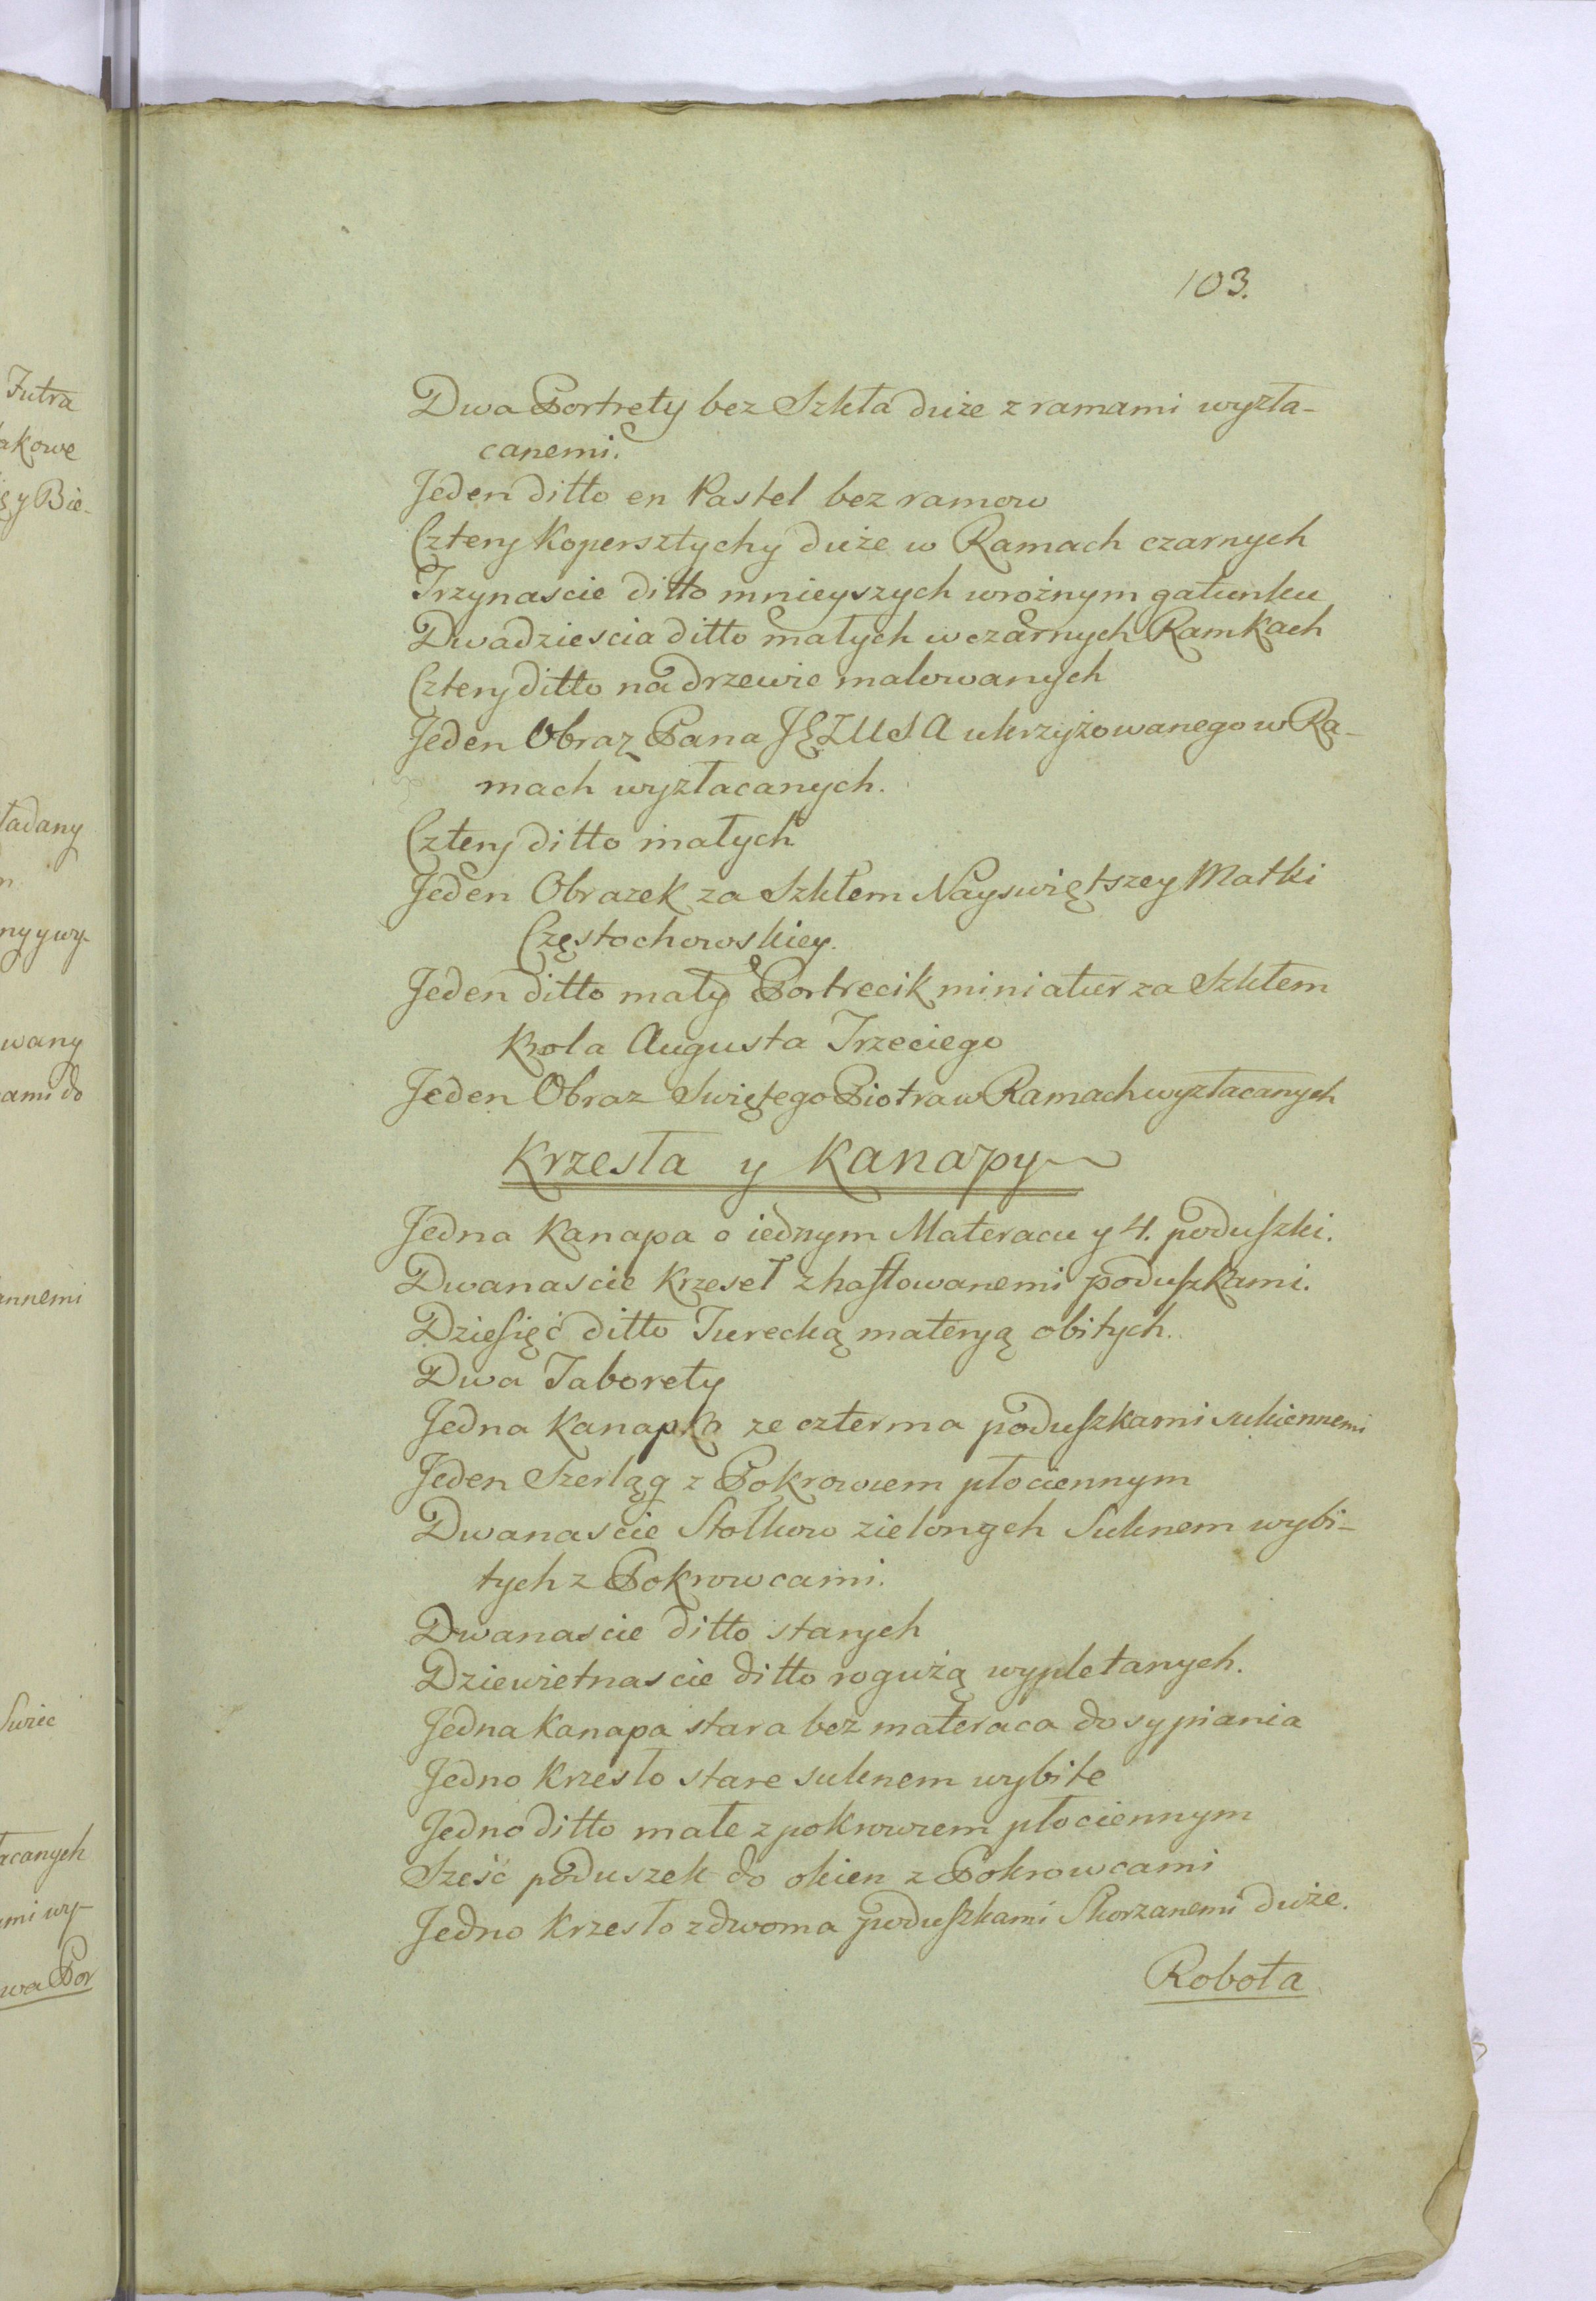 103.
Dwa Portrety bez Szkła duże z ramami wyzła-
canemi.
Jeden ditto en Pastel bez ramow
Cztery Kopersztychy duże w Ramach czarnych
Trzynascie ditto mnieyszych w rożnym gatunku
Dwadziescia ditto małych w czarnych Ramkach
Cztery ditto na drzewie malowanych
Jeden Obraz Pana JEZUSA ukrzyżowanego w Ra-
mach wyzłacanych.
Cztery ditto małych
Jeden Obrazek za Szkłem Nayswiętszey Matki
Częstochowskiey.
Jeden ditto mały Portrecik miniatur za Szkłem
Krola Augusta Trzeciego
Jeden Obraz Swiętego Piotra w Ramach wyzłacanych
Krzesła y Kanapy
Jedna Kanapa o iednym Materacu y 4. poduszki.
Dwanascie Krzeseł z haftowanemi poduszkami.
Dziesięć ditto Turecką materyą obitych.
Dwa Taborety
Jedna Kanapka ze czterma poduszkami sukiennemi
Jeden Szerląg z Pokrowcem płociennym
Dwanascie Stołkow zielonych Suknem wybi-
tych z Pokrowcami.
Dwanascie ditto starych
Dziewietnascie ditto rogużą wypletanych.
Jedna Kanapa stara bez materaca do sypiania
Jedno Krzesło stare suknem wybite
Jedno ditto małe z pokrowcem płociennym
Sześć poduszek do okien z Pokrowcami
Jedno Krzesło z dwoma poduszkami Skorzanemi duże.
Robota
Futra
akowe
y Bie-
ładany
ny y wy-
wany
ami do
annemi
Swiec
acanych
mi wy-
wa Por